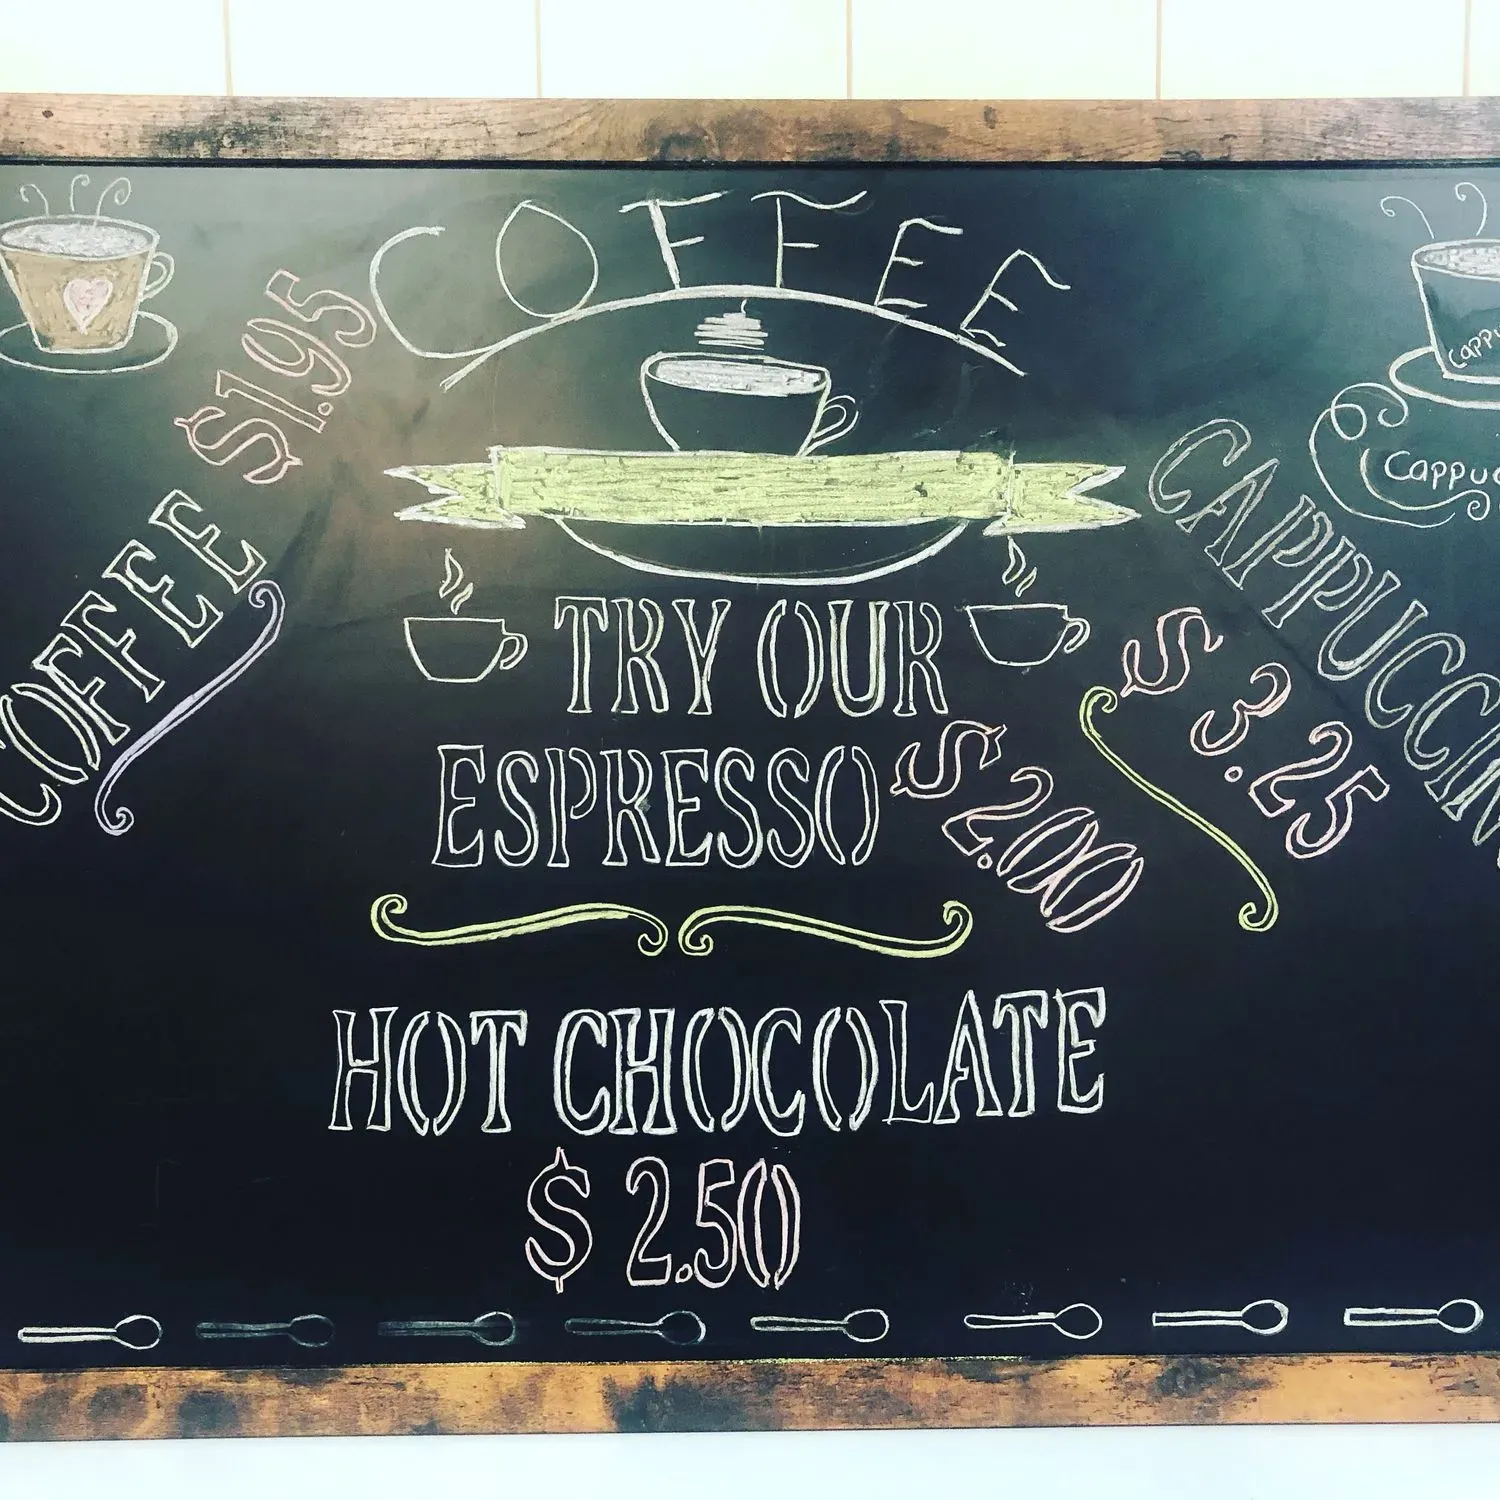 COFFEE
$1.95
COFFEE
Cappu
Cappuc
CAPPUCCIN
$3.25
TRY OUR
ESPRESSO
$2.00
HOT CHOCOLATE
$2.50